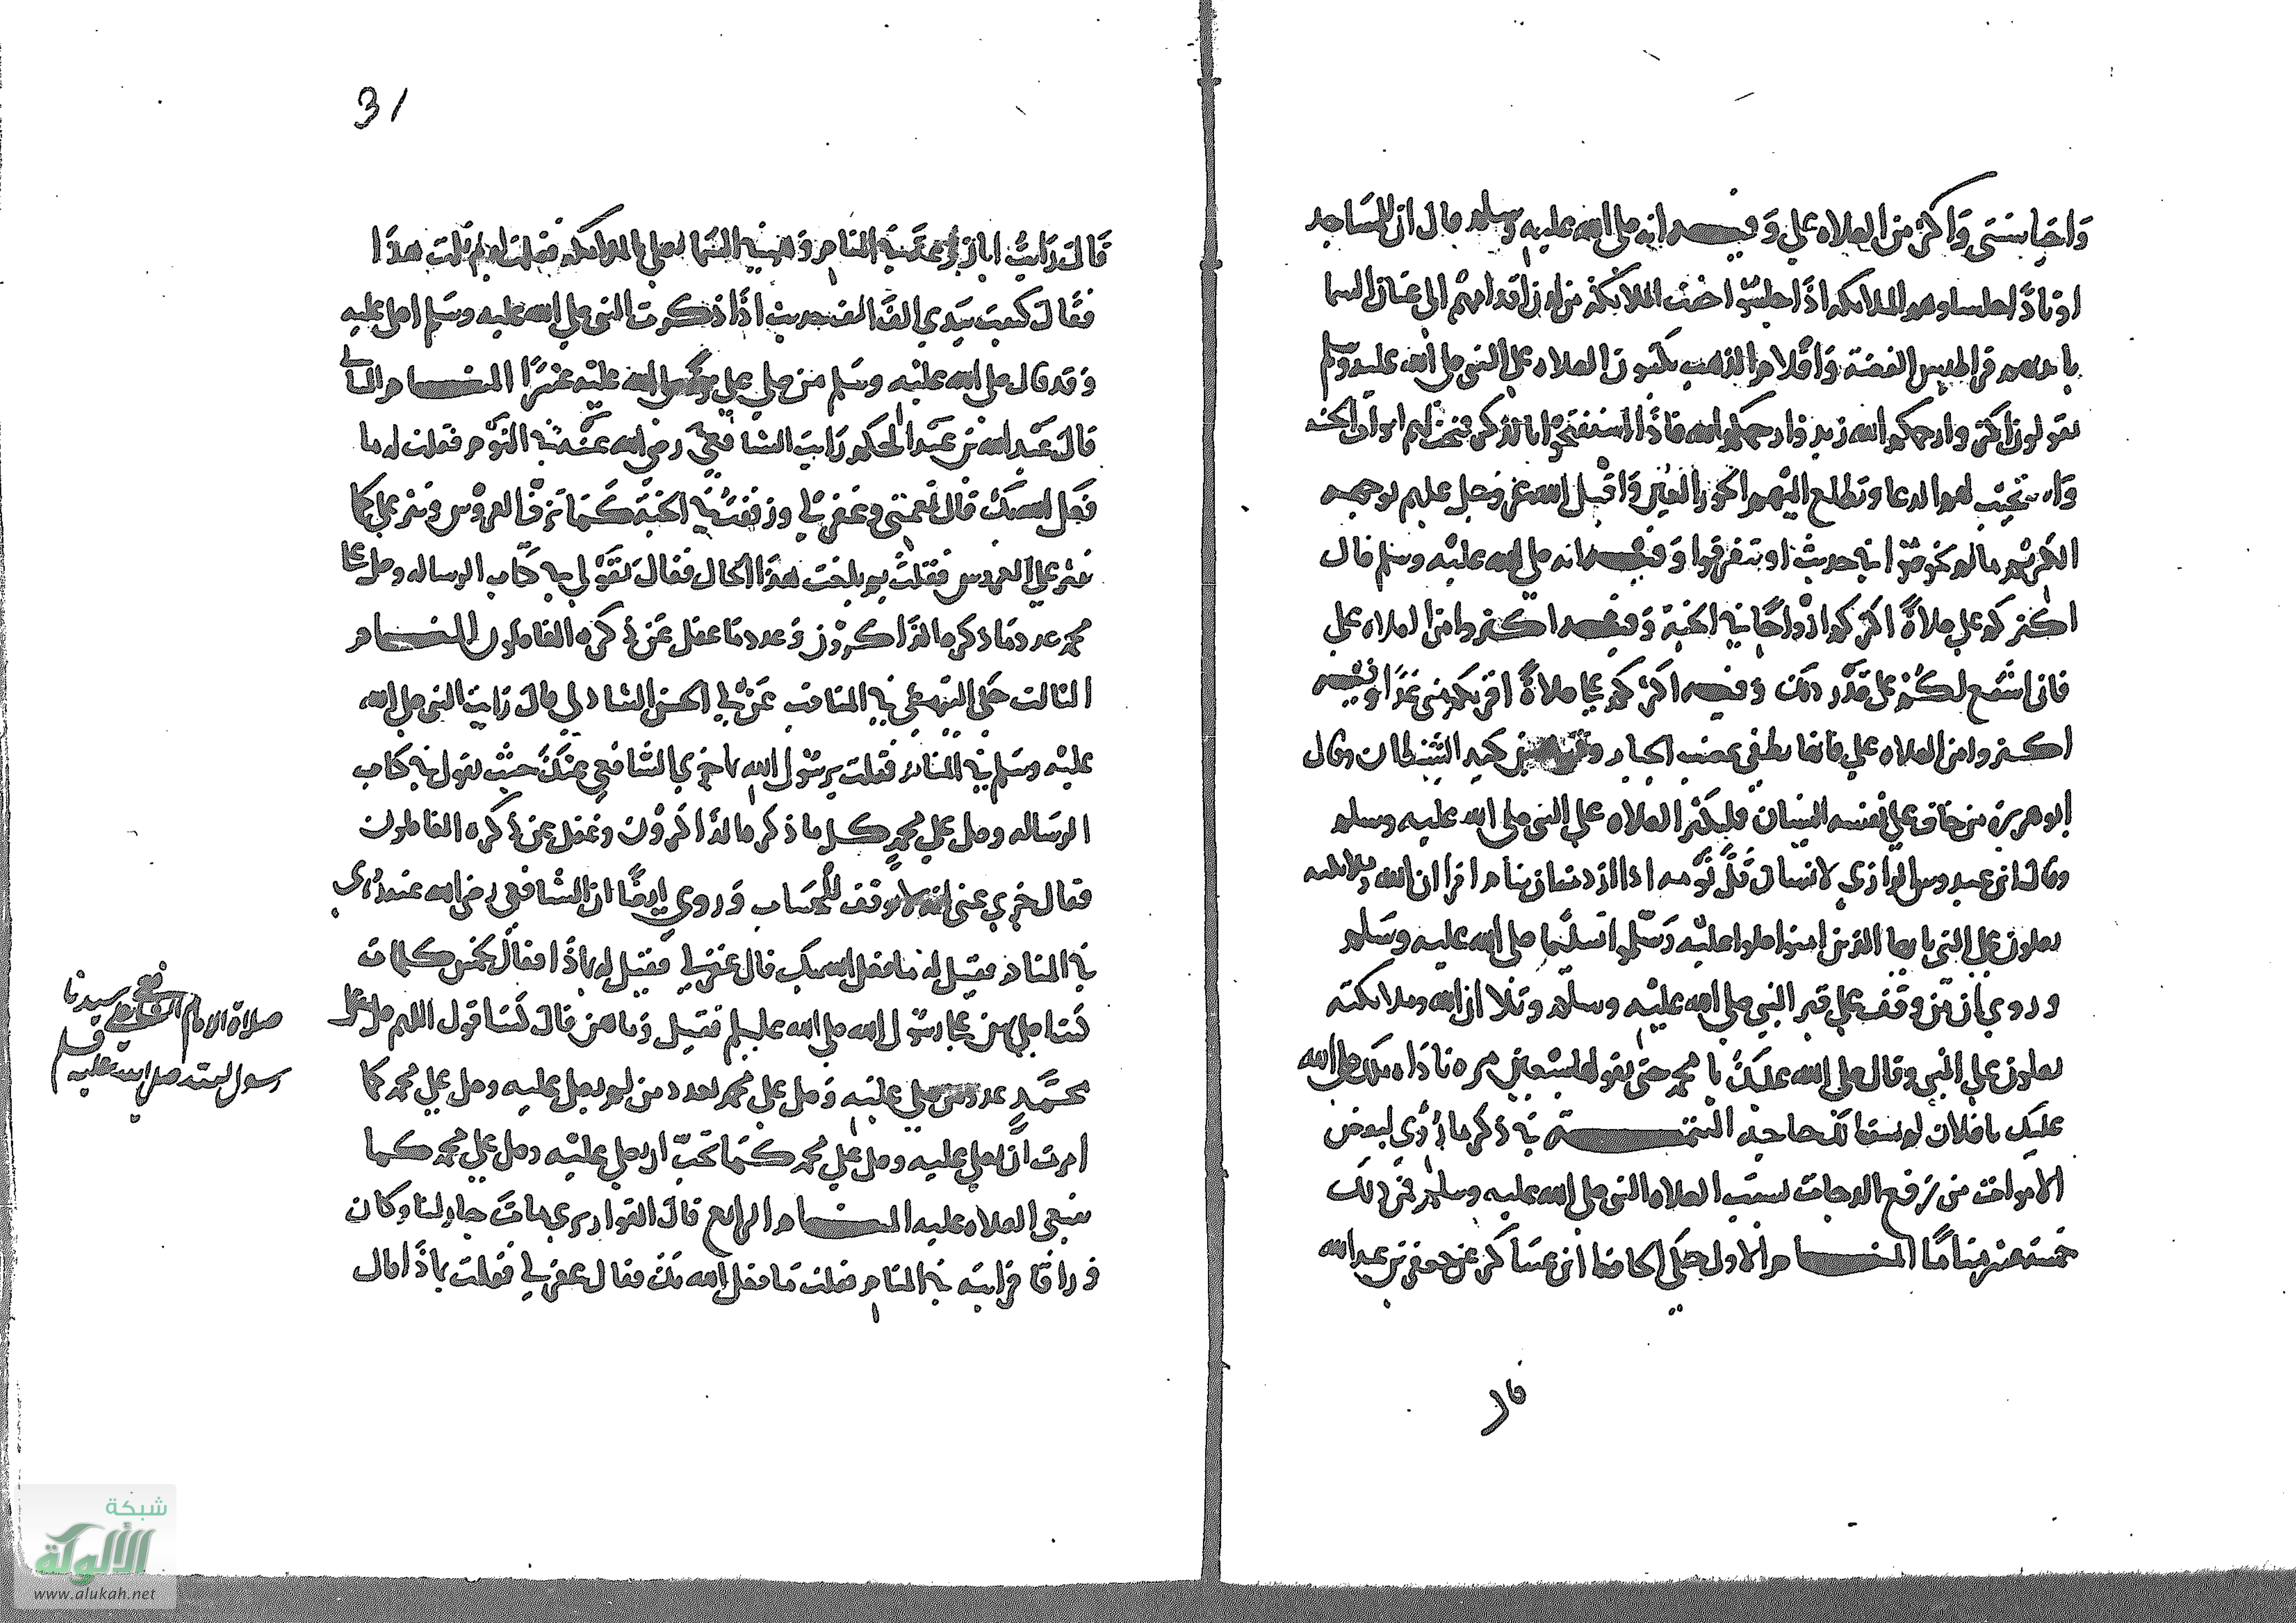 واحيا سنتي واكثر من الصلاه علي وفيه انه صلى الله عليه وسلم قال ان للمساجد
اوتادا جلساوهم الملايكه اذا جلسوا حفت الملايكة من لدن اقدامهم الى عنان السما
بايديهم قراطيس الفضة واقلام الذهب يكتبون الصلاه على النبي صلى الله عليه وسلم
يقولون اكثروا رحمكم الله زيدوا رحمكم الله فاذا استفتحوا بالذكر فتحت لهم ابواب الجنه
واستجيب لهم الدعا وتطلع اليهم الحور العين واقبل الله عز وجل عليهم بوجهه
الكريم مالم يخوضوا في حديث او يتفرقوا وفيه انه صلى الله عليه وسلم قال
اكثركم علي صلاة اكثركم ازواجا في الجنة وفيه اكثروا من الصلاه علي
فاني اشفع لكم على قدر ذلك وفيه اكثركم علي صلاة اقربكم مني غدا وفيه
اكثروا من الصلاه علي فانها تطفي غضب الجبار وتوهن كيد الشيطان وقال
ابو هريرة من خاف على نفسه النسيان فليكثر الصلاه على النبي صلى الله عليه وسلم
وقال ابن عبدوس الرازي لانسان قل نومه اذا اردت ان تنام اقرا ان الله وملايكته
يصلون على النبي يا ايها الذين امنوا صلوا عليه وسلموا تسليما صلى الله عليه وسلم
وروي ان من وقف على قبر النبي صلى الله عليه وسلم وتلا ان الله وملايكته
يصلون على النبي وقال صلى الله عليك يا محمد حتى يقولها سبعين مره ناداه ملك صلى الله
عليك يا فلان لم يسقط لك حاجة التتمـــة في ذكر ما رؤي لبعض
الاموات من رفع الدرجات بسبب الصلاه النبي صلى الله عليه وسلم فمن ذلك
خمسة عشر مناما المنـــام الاول حكى الحافظ ابن عساكر عن جعفر بن عبد الله
قال
31
قال رايت ابا زرعة في المنام وهو في السما يصلي بالملايكه فقلت له بم نلت هذا
فقال كتبت بيدي الف الف حديث اذا ذكرت النبي صلى الله عليه وسلم اصلي عليه
وقد قال صلى الله عليه وسلم من صلى علي مرة صلى الله عليه عشرا المنـــام الثاني
قال عبد الله بن عبد الحكم رايت الشافعي رضي الله عنه في النوم فقلت له ما
فعل الله بك قال نعمني وغفر لي وزففت في الجنة كما تزف العروس ونثر علي كما
نثر على العروس فقلت بم بلغت هذا الحال فقال بقولي في كتاب الرساله وصل على
محمد عدد ما ذكره الذاكرون وعدد ما غفل عن ذكره الغافلون المنـــام
الثالث حكى النهرعي في المناقب عن ابي الحسن الشاذلي قال رايت النبي صلى الله
عليه وسلم في المنام فقلت يرسول الله ما جزي الشافعي عنك حيث يقول في كتاب
الرساله وصل على محمد كل ما ذكره الذاكرون وغفل عن ذكره الغافلون
فقال جزي عني انه لا يوقف للحساب وروي ايضا ان الشافعي رضي الله عنه رؤي
في المنام فقيل له ما فعل الله بك قال غفر لي فقيل له بماذا فقال بخمس كلمات
كنت اصلي بهن على رسول الله صلى الله عليه وسلم فقيل وما هن قال كنت اقول اللهم صل على
محمد عدد من صلى عليه وصل على محمد بعدد من لم يصل عليه وصل على محمد كما
امرت ان يصلى عليه وصل على محمد كما تحب ان يصلى عليه وصل على محمد كما
ينبغي الصلاه عليه المنـــام الرابع قال القواريري مات جار لنا وكان
وراقا فرايته في المنام فقلت ما فعل الله بك فقال غفر لي فقلت بماذا قال
صلاة الامام الشافعي على سيدنا
رسول الله صلى الله عليه وسلم
شبكة
الألوكة
www.alukah.net